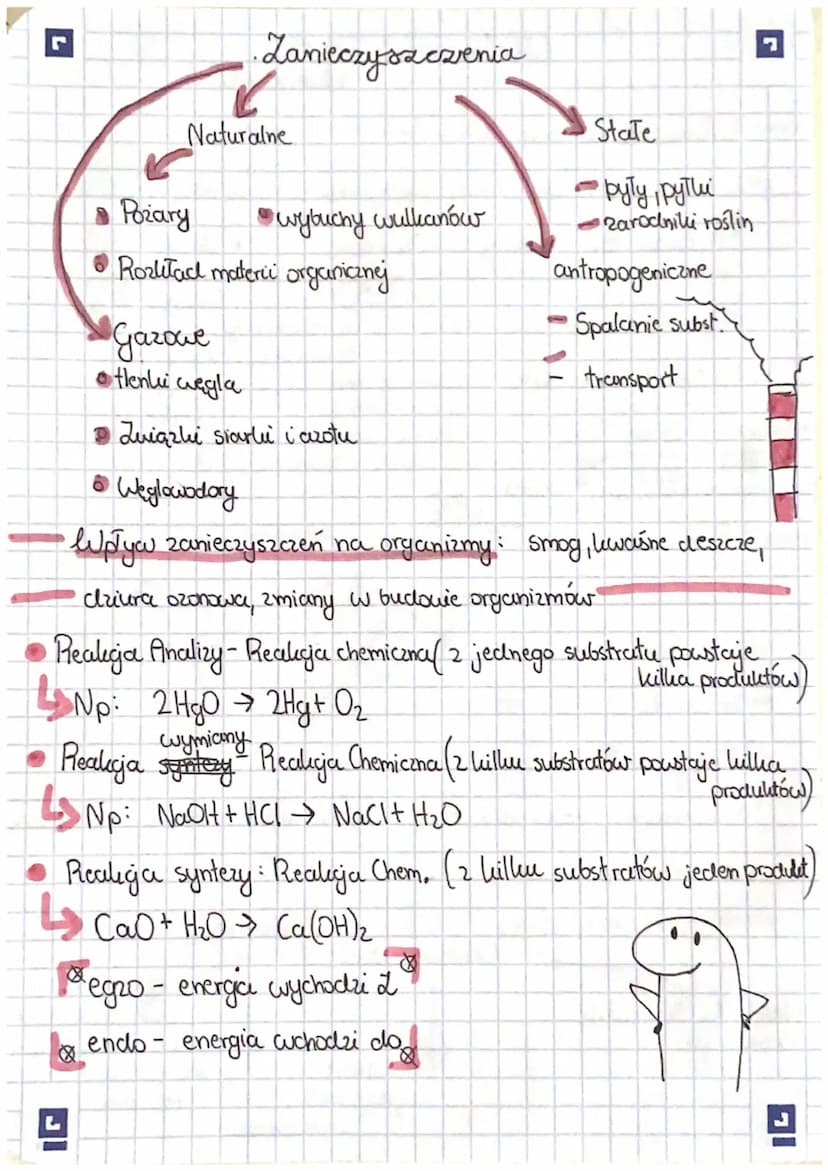 Zanieczyszczenia
Naturalne
• Pożary • wybuchy wulkanów
• Rozkład materii organicznej
Gazowe
• tlenki węgla
• Związki siarki i azotu
• Węglowodory
Stałe
- pyły, pyłki
- zarodniki roślin
antropogeniczne
- Spalanie subst.
- transport
Wpływ zanieczyszczeń na organizmy: smog, kwaśne deszcze,
dziura ozonowa, zmiany w budowie organizmów
• Reakcja Analizy - Reakcja chemiczna (z jednego substratu powstaje
kilka produktów)
Np: 2HgO → 2Hg + O₂
wymiany
• Reakcja syntezy - Reakcja Chemiczna (z kilku substratów powstaje kilka
produktów)
Np: NaOH + HCl → NaCl + H₂O
• Reakcja syntezy: Reakcja Chem. (z kilku substratów jeden produkt)
CaO + H₂O → Ca(OH)₂
egzo - energia wychodzi z
endo - energia wchodzi do